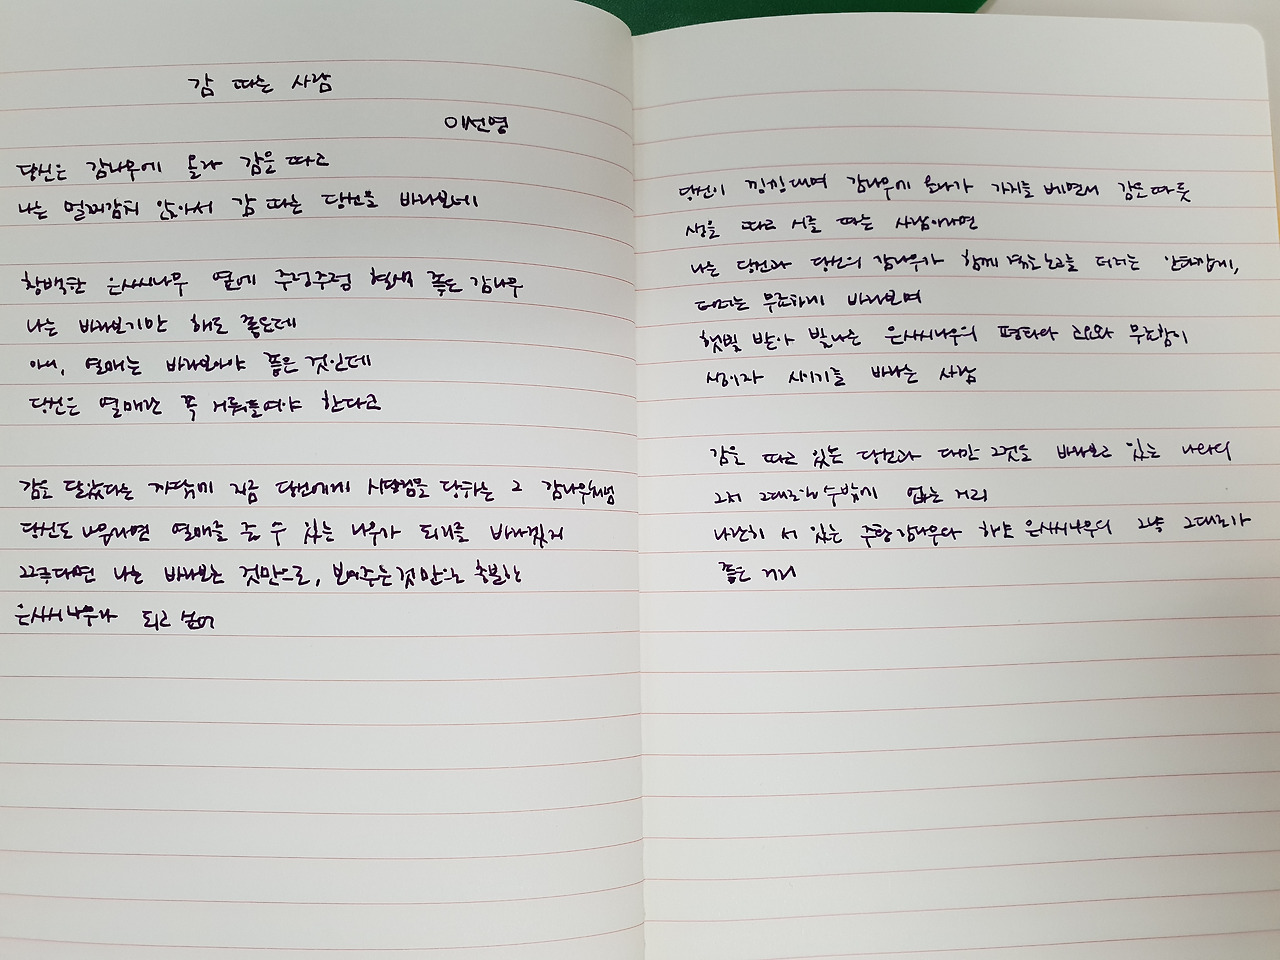 감 따는 사람
이선영
당신은 감나무에 올라 감을 따고
나는 멀찌감치 앉아서 감 따는 당신을 바라보네
창백한 은사시나무 옆에 주렁주렁 혈색 좋은 감나무
나는 바라보기만 해도 좋은데
아니, 열매는 바라보아야 좋은 것인데
당신은 열매란 꼭 거둬들여야 한다고
감을 달았다는 까닭에 지금 당신에게 시달림을 당하는 그 감나무처럼
당신도 나무라면 열매를 줄 수 있는 나무가 되기를 바라겠지
그렇다면 나는 바라보는 것만으로, 보여주는 것만으로 충분한
은사시나무가 되고 싶어
당신이 낑낑대며 감나무에 올라가 가지를 베면서 감을 따듯
생을 따고 시를 따는 사람이라면
나는 당신과 당신의 감나무가 함께 겪는 노고를 더러는 안타깝게,
더러는 무료하게 바라보며
햇빛 받아 빛나는 은사시나무의 평화와 고요와 무료함이
생이자 시이기를 바라는 사람
감을 따고 있는 당신과 다만 그것을 바라보고 있는 나와의
그저 그대로일 수밖에 없는 거리
나란히 서 있는 주황 감나무와 하얀 은사시나무의 그냥 그대로가
좋은 거리